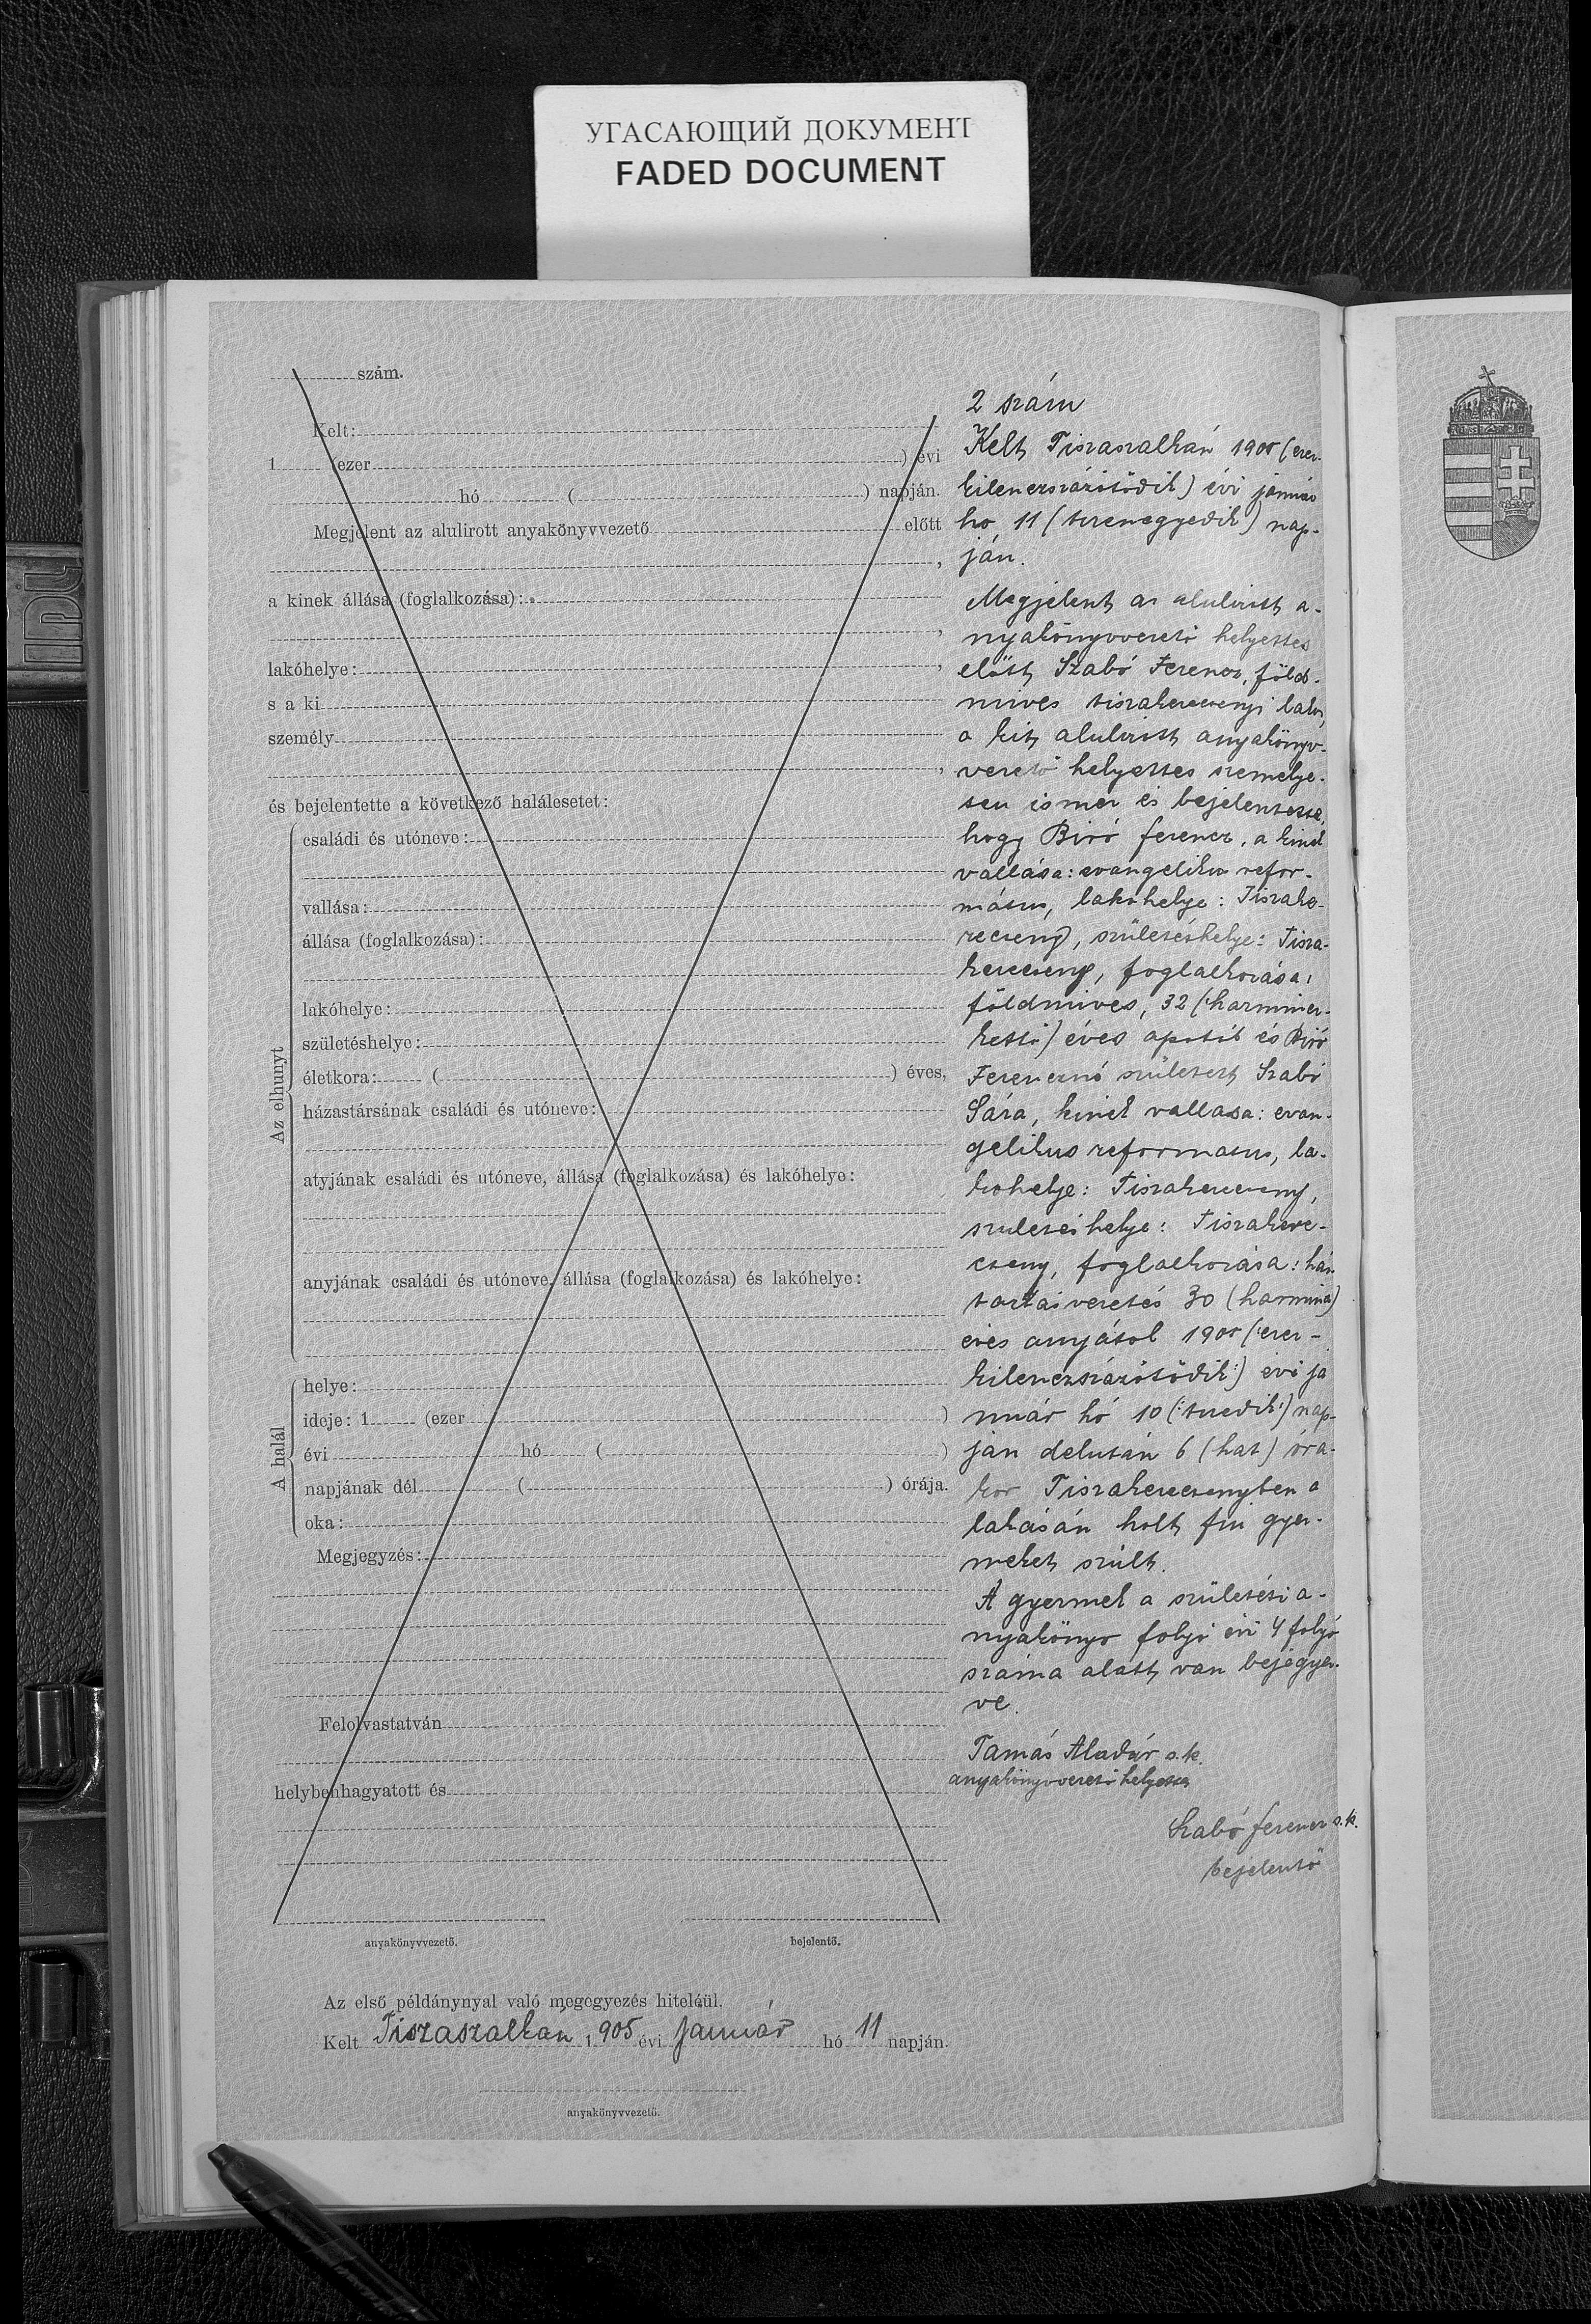 УГАСАЮЩИЙ ДОКУМЕНТ
FADED DOCUMENT
szám.
Kelt:
1 (ezer ) évi
hó ( ) napján.
Megjelent az alulirott anyakönyvvezető előtt
,
a kinek állása (foglalkozása):
,
lakóhelye: ,
s a ki
személy
,
és bejelentette a következő halálesetet:
Az elhunyt
családi és utóneve:
vallása:
állása (foglalkozása):
lakóhelye:
születéshelye:
életkora: ( ) éves,
házastársának családi és utóneve:
atyjának családi és utóneve, állása (foglalkozása) és lakóhelye:
anyjának családi és utóneve, állása (foglalkozása) és lakóhelye:
A halál
helye:
ideje: 1 (ezer )
évi hó ( )
napjának dél ( ) órája.
oka:
Megjegyzés:
Felolvastatván
helybenhagyatott és
anyakönyvvezető. bejelentő.
2 szám
Kelt Tiszaszalkán 1905 (ezer-
kilenczszázötödik) évi január
hó 11 (tizenegyedik) nap-
ján.
Megjelent az alulirott a-
nyakönyvvezető helyettes
előtt Szabó Ferencz, föld-
mives tiszakerecsenyi lakos,
a kit alulirott anyakönyv-
vezető helyettes személye-
sen ismer és bejelentette,
hogy Biró Ferencz, a kinek
vallása: evangelikus refor-
mátus, lakóhelye: Tiszake-
recseny, születéshelye: Tisza-
kerecseny, foglalkozása:
földmives, 32 (harmincz-
kettő) éves apától és Biró
Ferencznő született Szabó
Sára, kinek vallása: evan-
gelikus reformatus, la-
kohelye: Tiszakerecseny,
születéshelye: Tiszakere-
cseny, foglalkozása: ház-
tartásvezetés 30 (harmincz)
éves anyától 1905 (:ezer-
kilenczszázötödik:) évi ja
nuár hó 10 (:tizedik:) nap-
ján délután 6 (hat) óra-
kor Tiszakerecsenyben a
lakásán holt fiu gyer-
meket szült.
A gyermek a születési a-
nyakönyv folyó évi 4 folyó
száma alatt van bejegyez-
ve.
Tamás Aladár s.k.
anyakönyvvezető helyettes
Szabó Ferencz s.k.
bejelentő
Az első példánynyal való megegyezés hiteléül.
Kelt Tiszaszalkán 1 905 évi január hó 11 napján.
anyakönyvvezető.